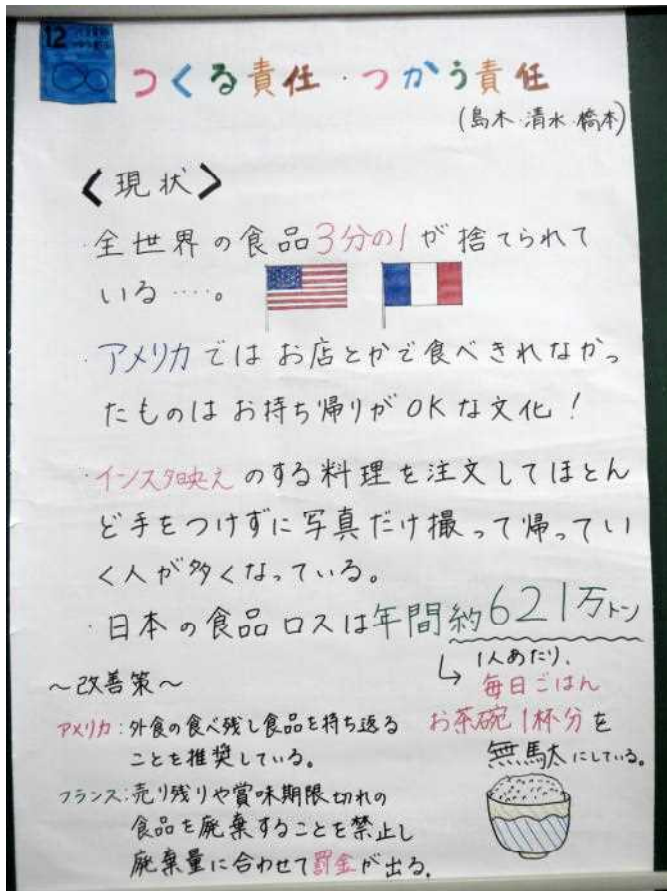 12
つくる責任・つかう責任
(島木・清水・橋本)
〈現状〉
・全世界の食品3分の1が捨てられて
いる....。
・アメリカではお店とかで食べきれなかっ
たものはお持ち帰りがOKな文化!
・インスタ映えのする料理を注文してほとん
ど手をつけずに写真だけ撮って帰ってい
く人が多くなっている。
・日本の食品ロスは年間約621万トン
↳1人あたり、
毎日ごはん
お茶碗1杯分を
無駄にしている。
～改善策～
アメリカ:外食の食べ残し食品を持ち返る
ことを推奨している。
フランス:売り残りや賞味期限切れの
食品を廃棄することを禁止し
廃棄量に合わせて罰金が出る。